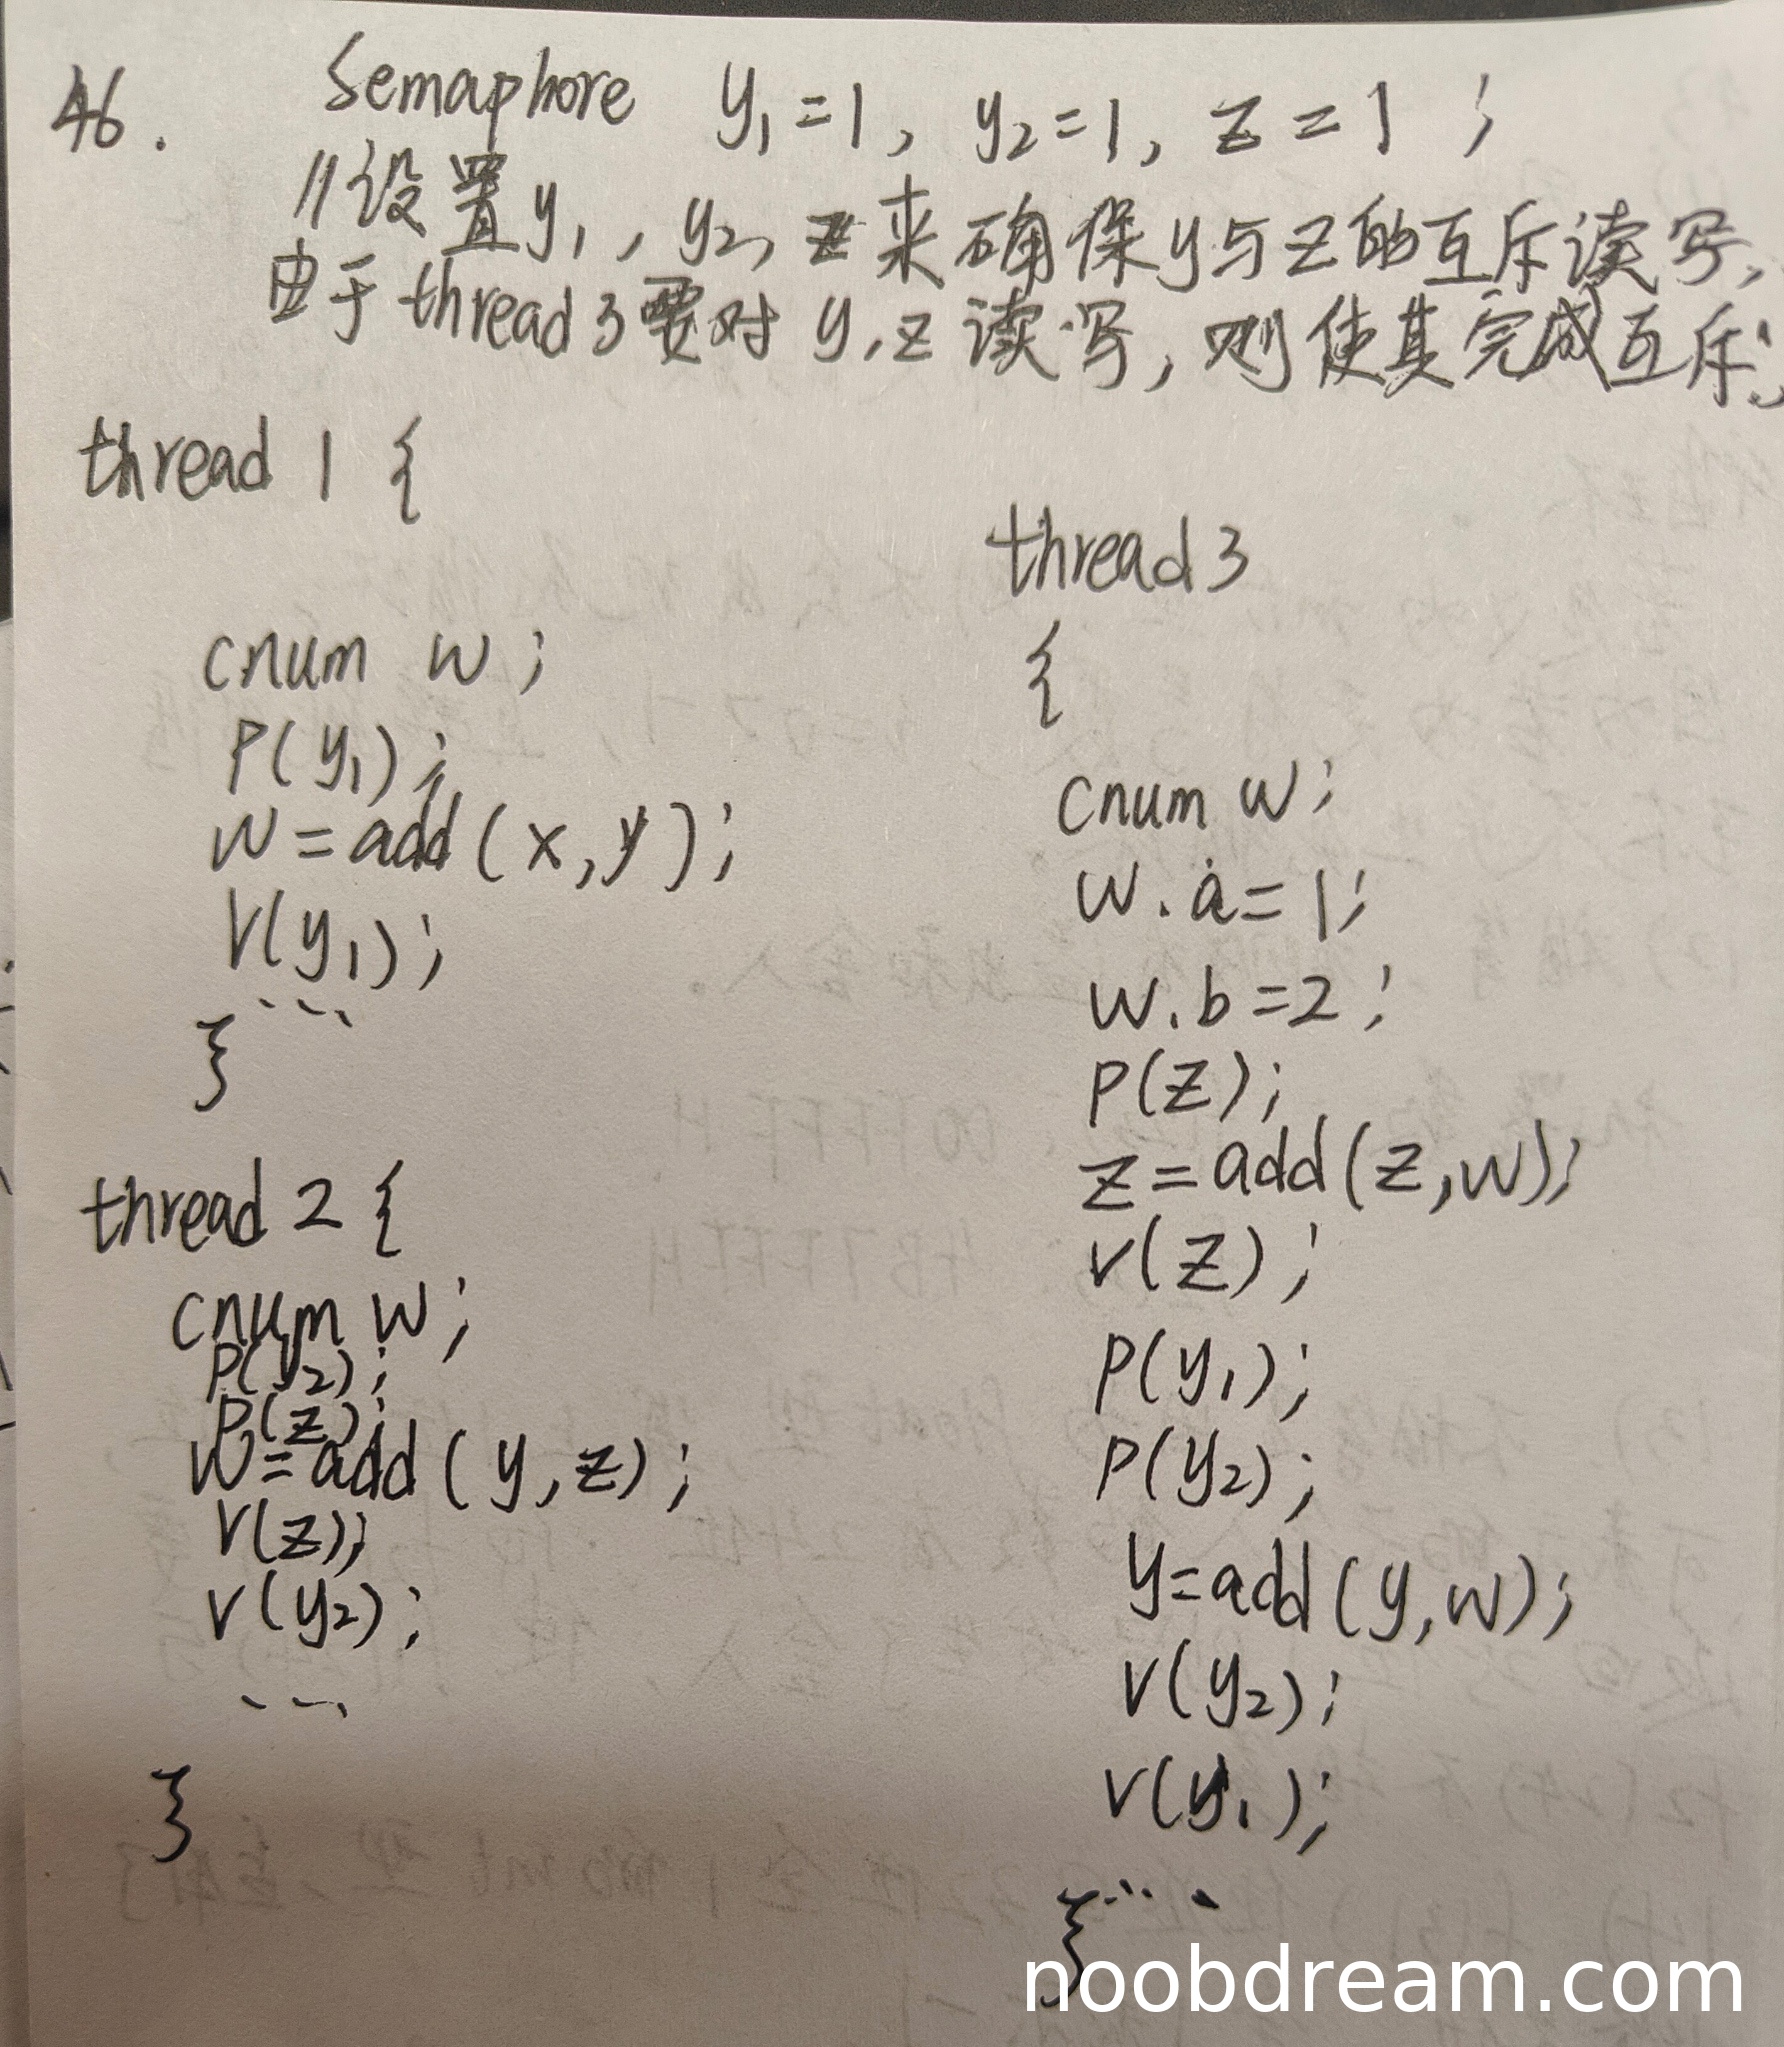 46.
Semaphore y₁=1, y₂=1, z=1;
//设置y₁, y₂, z来确保y与z的互斥读写,
由于thread3要对y,z读写,则使其完成互斥;
thread 1 {
cnum w;
P(y₁);
w=add(x,y);
V(y₁);
...
}
thread 2 {
cnum w;
P(y₂);
P(z);
w=add(y,z);
V(z);
V(y₂);
...
}
thread3
{
cnum w;
w.a=1;
w.b=2;
P(z);
z=add(z,w);
V(z);
P(y₁);
P(y₂);
y=add(y,w);
V(y₂);
V(y₁);
...
}
noobdream.com